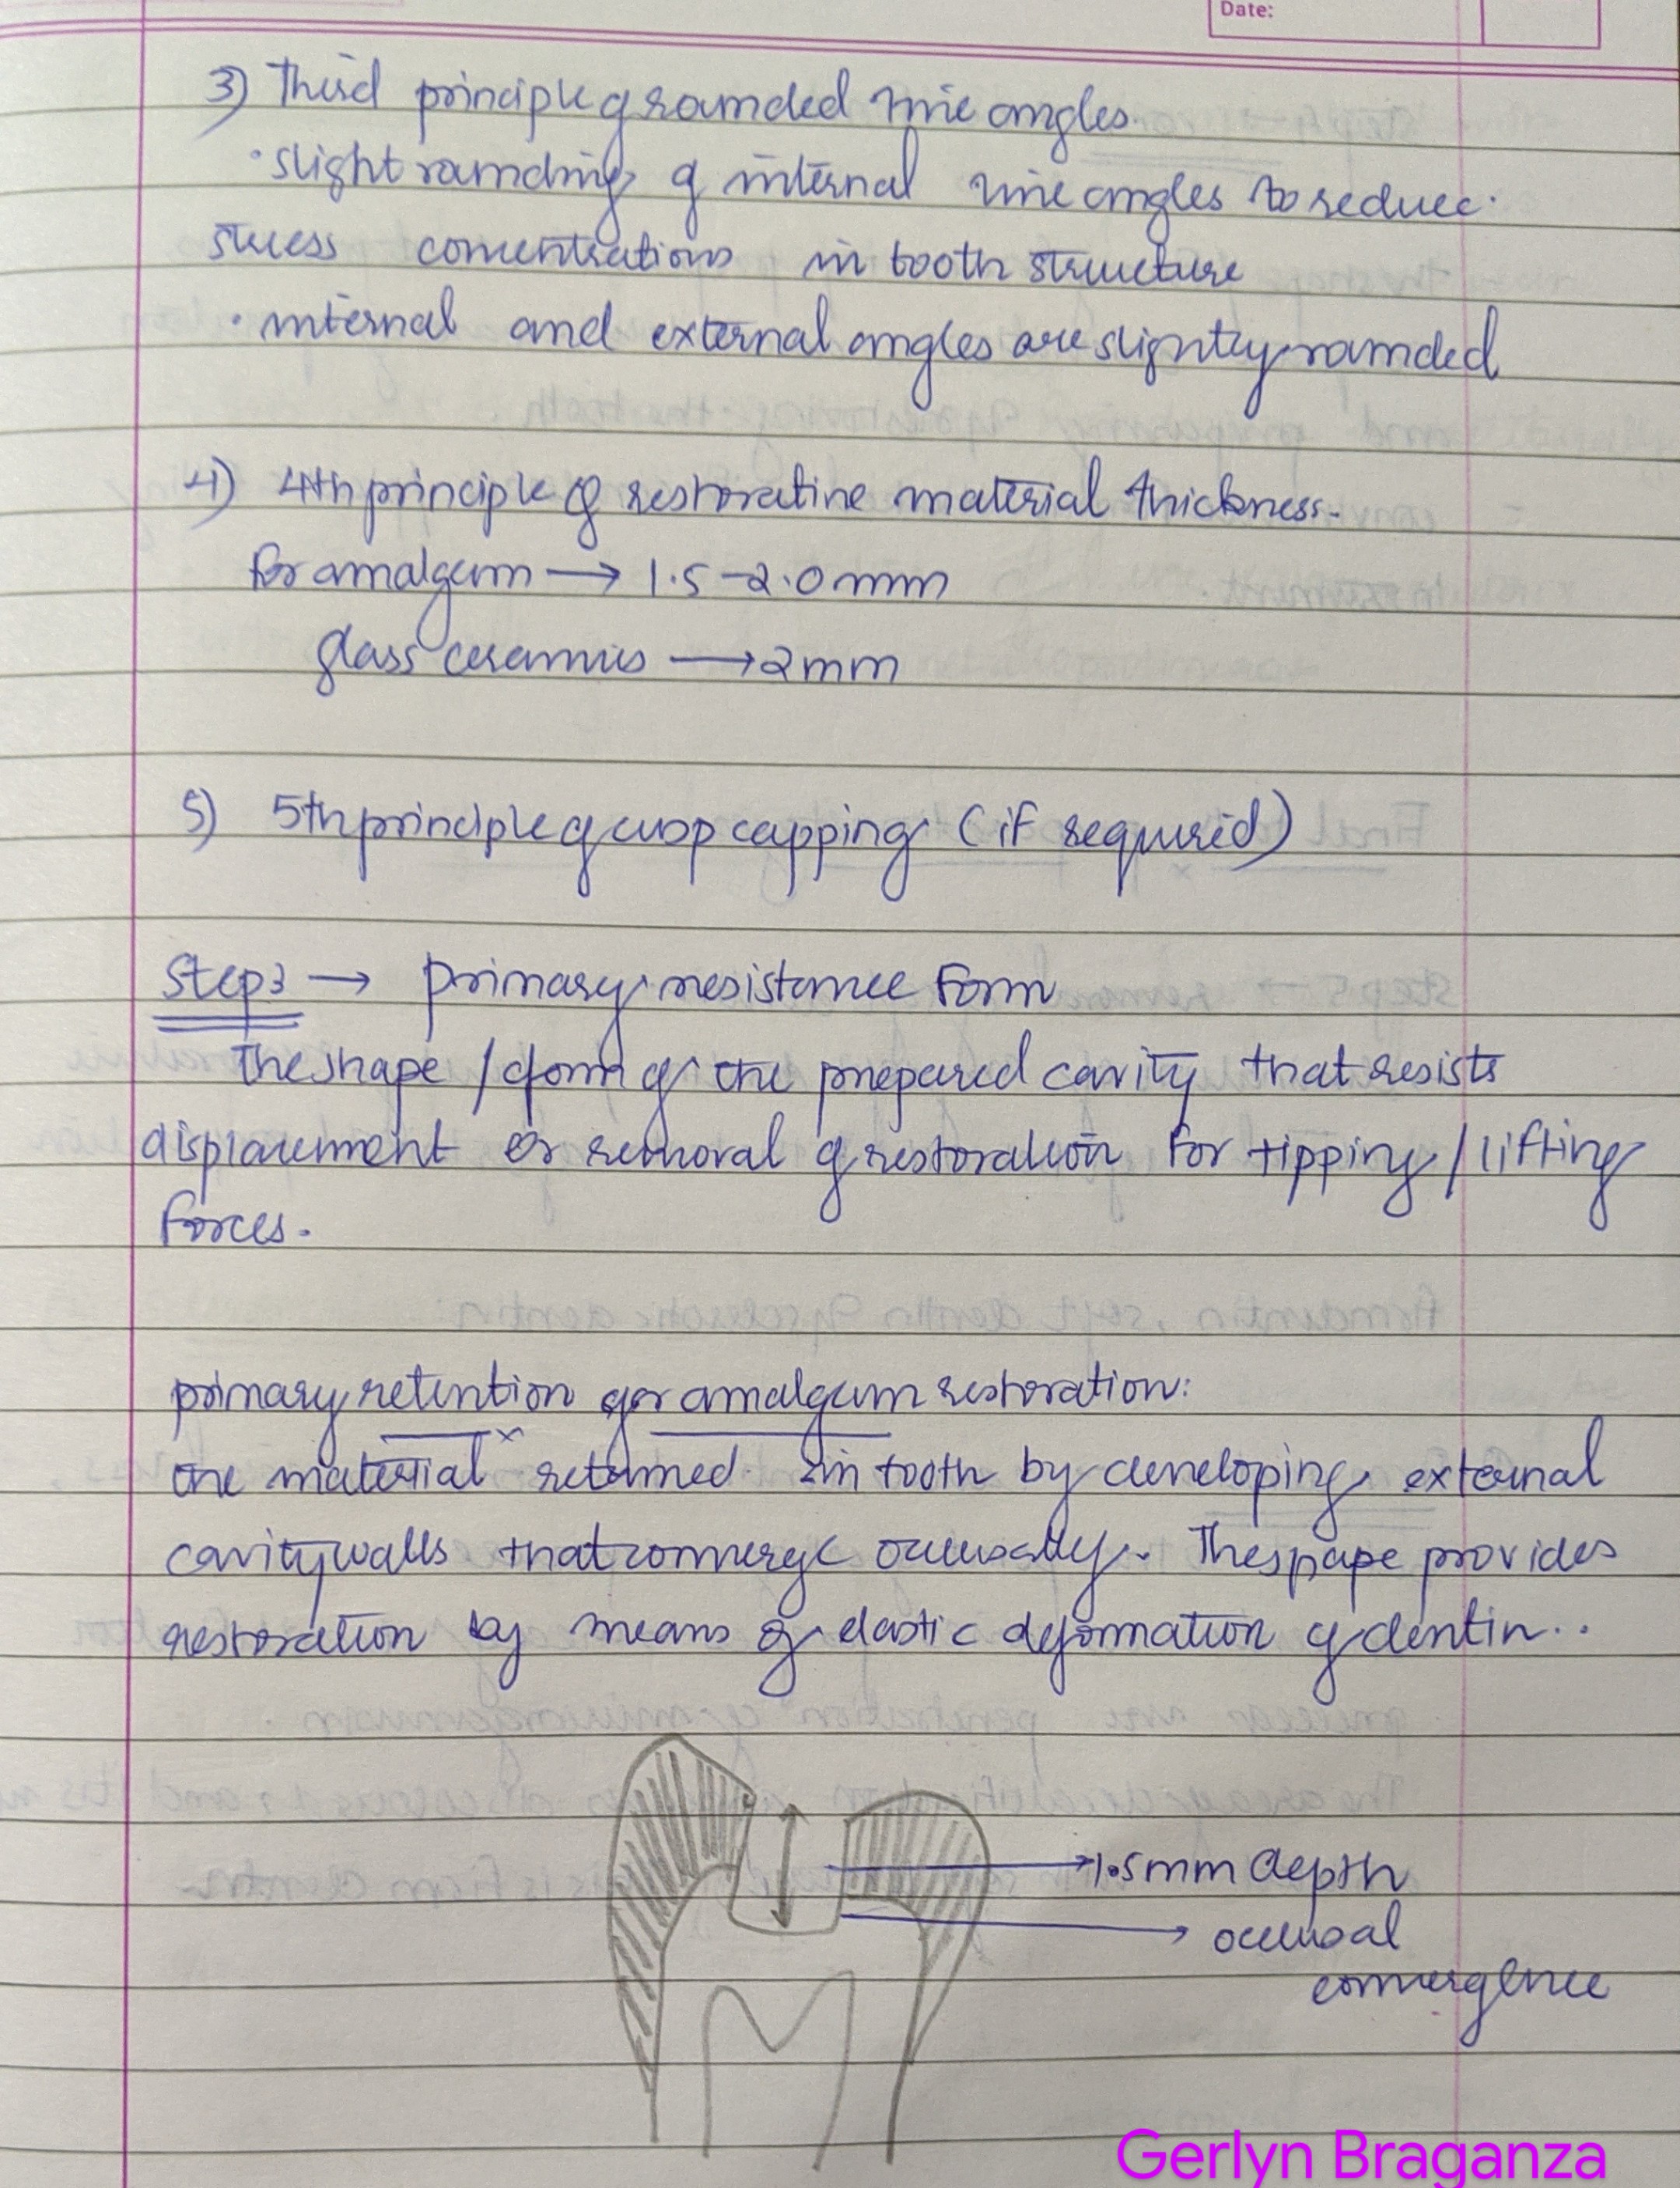 Date:
3) Third principle of rounded line angles.
• slight rounding of internal line angles to reduce.
stress concentrations in tooth structure
• internal and external angles are slightly rounded
4) 4th principle of restorative material thickness.
for amalgam → 1.5-2.0mm
glass ceramics → 2mm
5) 5th principle of cusp capping (if required)
Step3 → primary resistance form
The shape / form of the prepared cavity that resists
displacement or removal of restoration for tipping / lifting
forces.
primary retention for amalgam restoration:
the material retained in tooth by developing external
cavity walls that converge occlusally. The shape provides
restoration by means of elastic deformation of dentin..
1.5mm depth
occlusal
convergence
Gerlyn Braganza